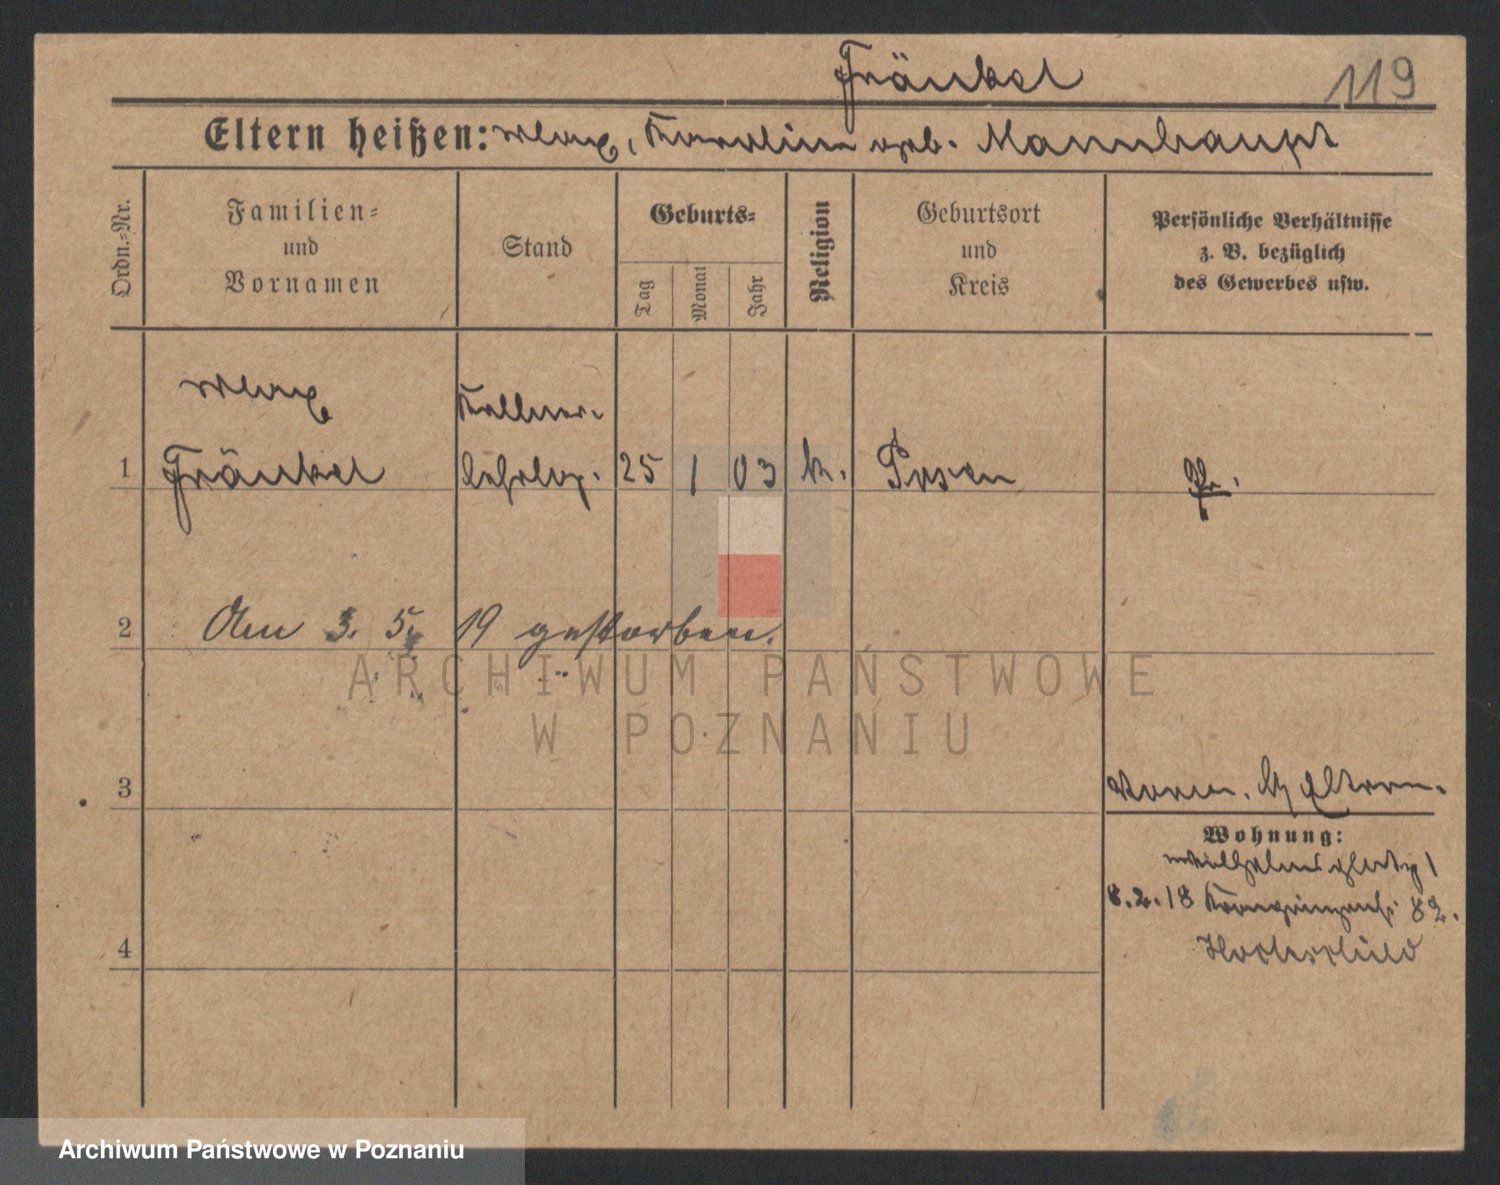 Fränkel
119
Eltern heißen: Max, Karoline geb. Mannhaupt
Ordn.-Nr.
Familien-
und
Vornamen
Stand
Geburts-
Tag
Monat
Jahr
Religion
Geburtsort
und
Kreis
Persönliche Verhältnisse
z. B. bezüglich
des Gewerbes usw.
Max
Kellner-
1 Fränkel lehrlg. 25 1 03 k. Posen Pr.
2 Am 3. 5. 19 gestorben.
3
Vorm. b/ Eltern.
Wohnung:
8.2.18 Kronprinzenstr. 82.
4
ARCHIWUM PAŃSTWOWE
W POZNANIU
Archiwum Państwowe w Poznaniu